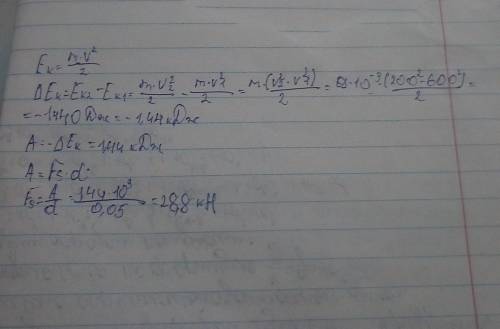 Eк = m·v²/2
ΔEк = Eк2 - Eк1 = m·v₂²/2 - m·v₁²/2 = m·(v₂² - v₁²)/2 = 9·10⁻³·(200² - 600²)/2 =
= -1440 Дж = -1,44 кДж
A = -ΔEк = 1,44 кДж
A = Fs·d
Fs = A/d = 1,44·10³/0,05 = 28,8 кН